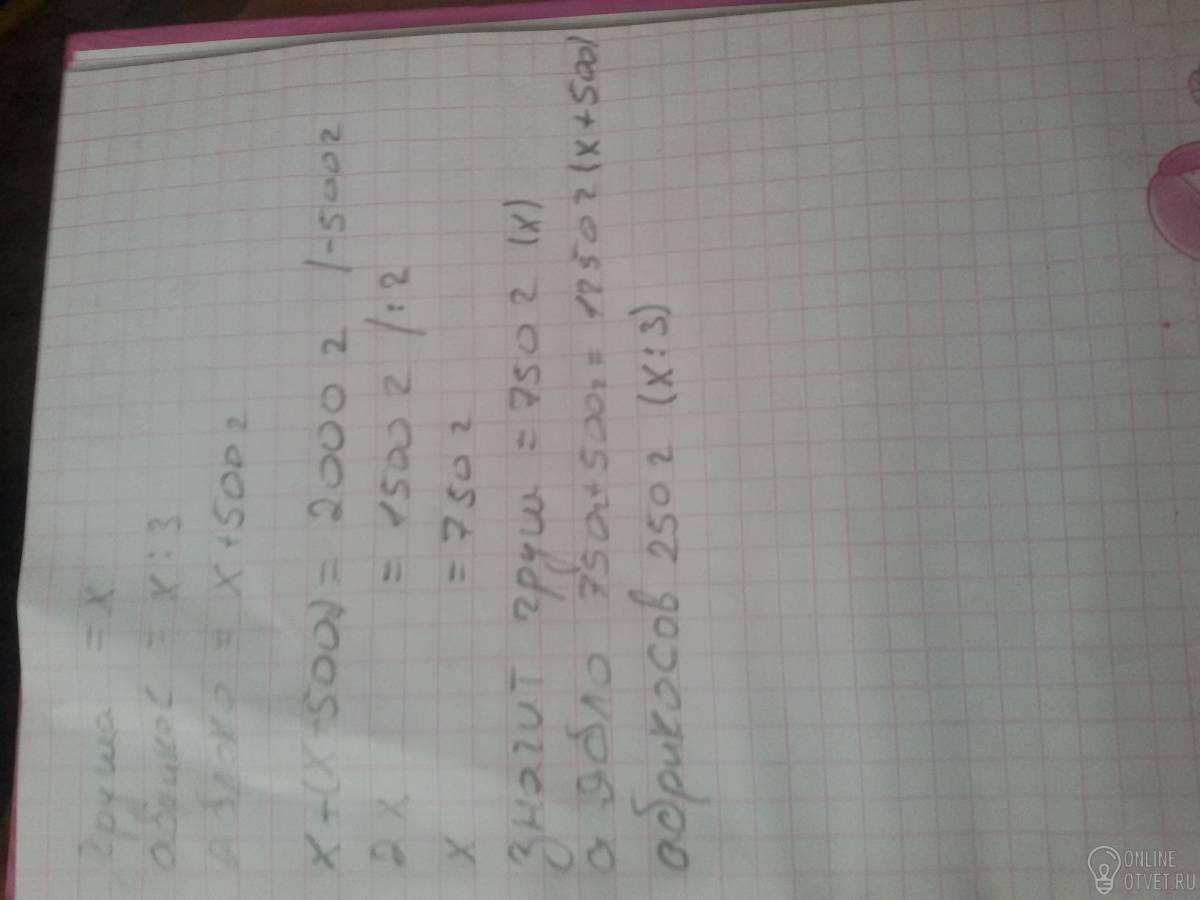 груша = x
абрикос = x : 3
яблоко = x + 500 г
x + (x + 500г) = 2000 г / - 500 г
2 x = 1500 г / : 2
x = 750 г
Значит груш = 750 г (x)
а ябло 750г + 500г = 1250 г (x + 500)
абрикосов 250 г (x : 3)
ONLINE
OTVET.RU